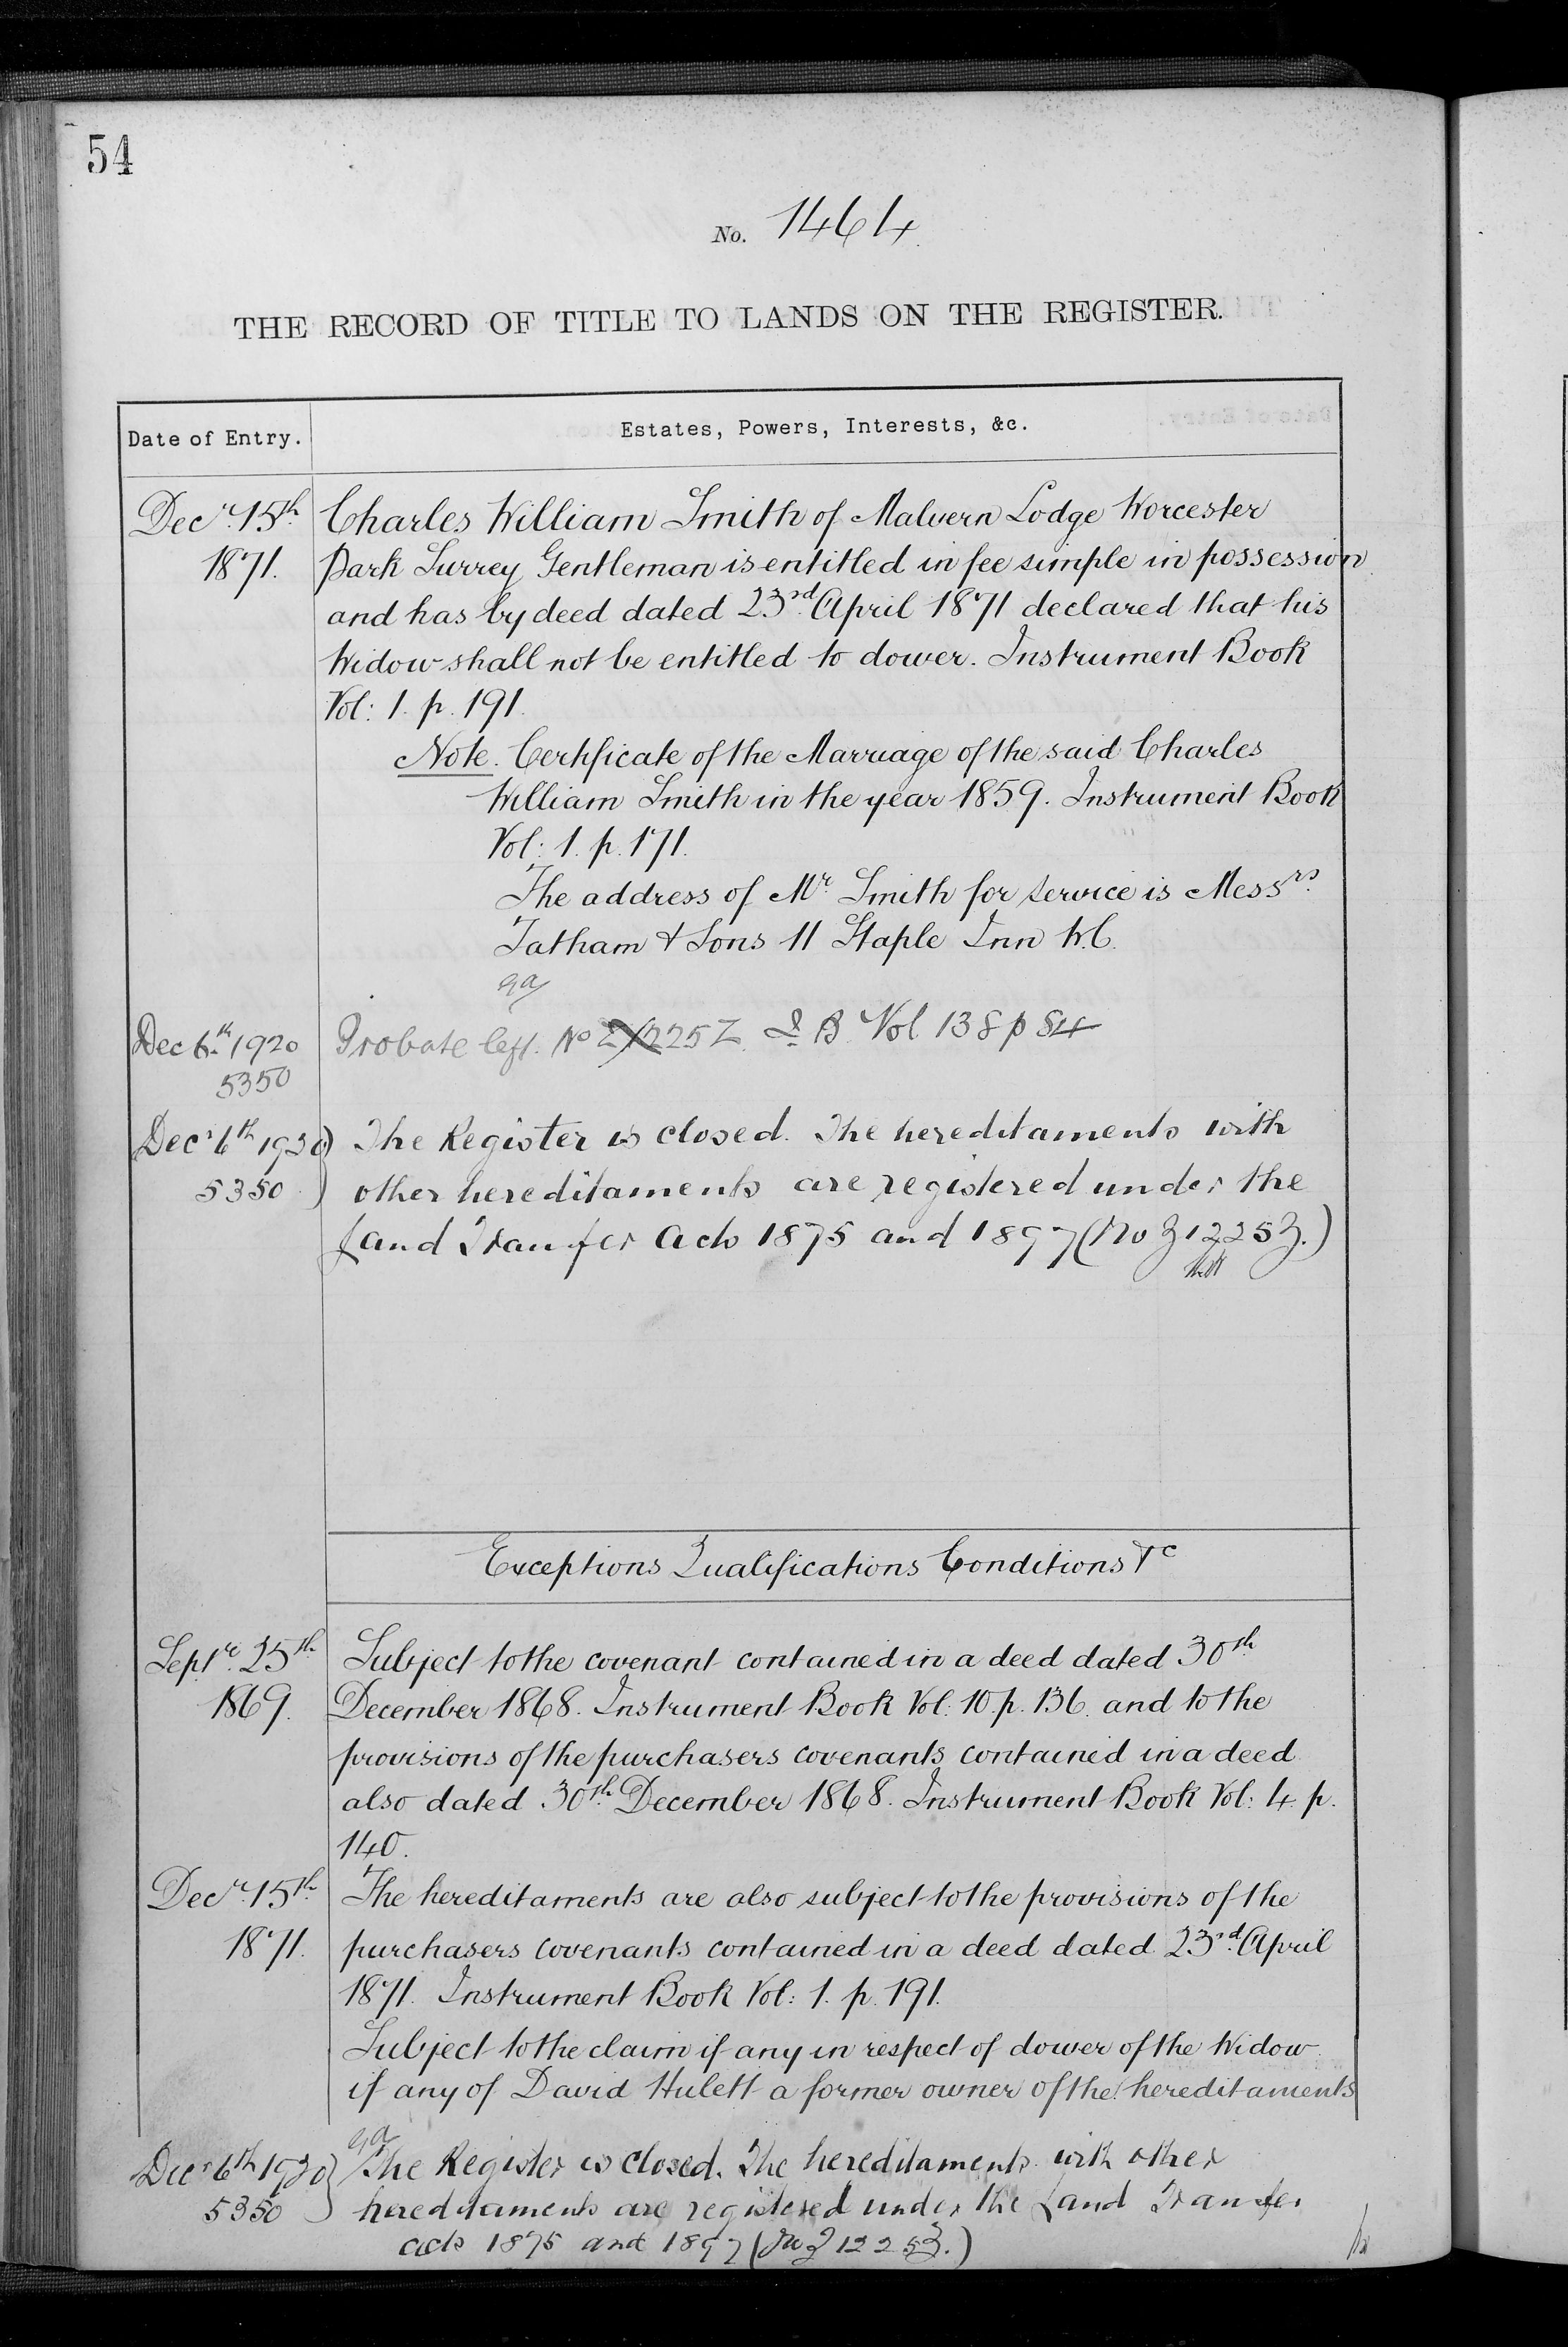 54
No. 1464
THE RECORD OF TITLE TO LANDS ON THE REGISTER.
Date of Entry.
Estates, Powers, Interests, &c.
Decr. 15th. Charles William Smith of Malvern Lodge Worcester
1871. Park Surrey Gentleman is entitled in fee simple in possession
and has by deed dated 23rd. April 1871 declared that his
Widow shall not be entitled to dower. Instrument Book
Vol: 1. p. 191.
Note. Certificate of the Marriage of the said Charles
William Smith in the year 1859. Instrument Book
Vol: 1. p. 171.
The address of Mr Smith for service is Messrs.
Tatham & Sons 11 Staple Inn W.C.
Dec 6th 1920 Probate left. No 225Z. I B. Vol 138 p 84
5350
Decr 6th 1920) The Register is closed. The hereditaments with
5350 ) other hereditaments are registered under the
Land Transfer Acts 1875 and 1897 (No Z1225Z.)
Exceptions Qualifications Conditions &c
Septr. 25th. Subject to the covenant contained in a deed dated 30th
1869. December 1868. Instrument Book Vol: 10. p. 136. and to the
provisions of the purchasers covenants contained in a deed
also dated 30th. December 1868. Instrument Book Vol: 4. p.
140.
Decr. 15th. The hereditaments are also subject to the provisions of the
1871. purchasers covenants contained in a deed dated 23rd. April
1871. Instrument Book Vol: 1. p. 191.
Subject to the claim if any in respect of dower of the Widow
if any of David Hulett a former owner of the hereditaments
Decr 6th 1920} The Register is closed. The hereditaments with other
5350 } hereditaments are registered under the Land Transfer
acts 1875 and 1897 (No Z1225Z.)